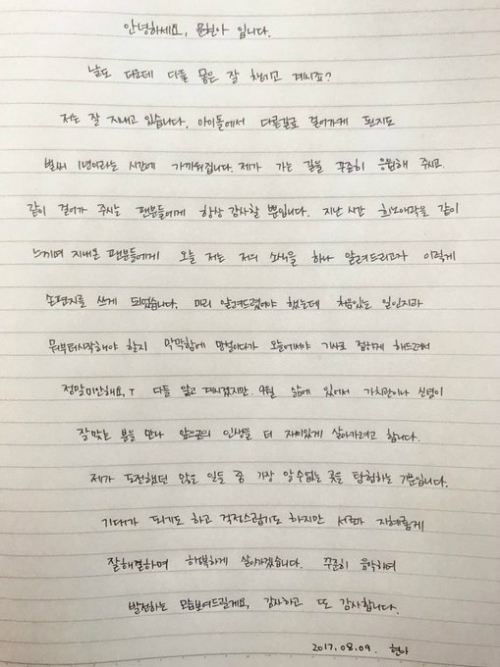 안녕하세요, 문현아 입니다.
날도 더운데 다들 몸은 잘 챙기고 계시죠?
저는 잘 지내고 있습니다. 아이돌에서 다른길로 걸어가게 된지도
벌써 1년이라는 시간에 가까워집니다. 제가 가는 길을 꾸준히 응원해 주시고
같이 걸어가 주시는 팬분들에게 항상 감사할 뿐입니다. 지난 시간 희노애락을 같이
느끼며 지내온 팬분들에게 오늘 저는 저의 소식을 하나 알려드리고자 이렇게
손편지를 쓰게 되었습니다. 미리 알려드렸어야 했는데 처음있는 일인지라
뭐부터시작해야 할지 막막함에 망설이다가 오늘에서야 기사로 접하게 해드려서
정말미안해요. 다들 알고 계시겠지만 9월 삶에 있어서 가치관이나 신념이
잘맞는 분을 만나 앞으로의 인생을 더 재미있게 살아가려고 합니다.
제가 도전했던 많은 일들 중 가장 알수없는 곳을 탐험하는 기분입니다.
기대가 되기도 하고 걱정스럽기도 하지만 서로가 지혜롭게
잘해결하며 행복하게 살아가겠습니다. 꾸준히 음악하며
발전하는 모습보여드릴게요, 감사하고 또 감사합니다.
2017.08.09. 현아